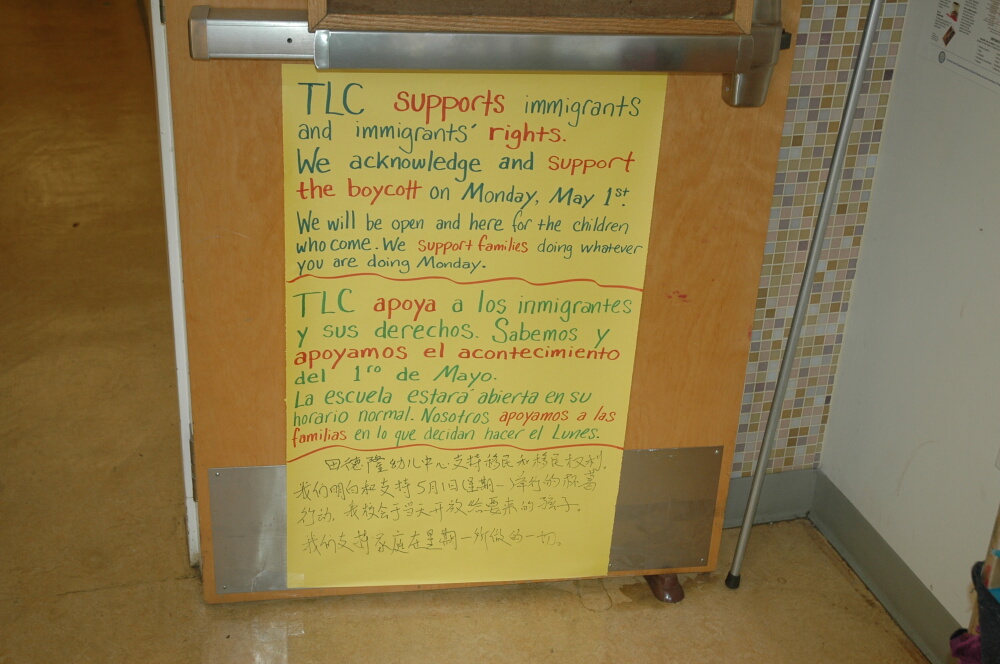 TLC supports immigrants
and immigrants' rights.
We acknowledge and support
the boycott on Monday, May 1st.
We will be open and here for the children
who come. We support families doing whatever
you are doing Monday.
TLC apoya a los inmigrantes
y sus derechos. Sabemos y
apoyamos el acontecimiento
del 1ro de Mayo.
La escuela estará abierta en su
horario normal. Nosotros apoyamos a las
familias en lo que decidan hacer el Lunes.
田德隆幼儿中心支持移民和移民权利.
我们明白和支持5月1日(星期一)举行的
行动. 我校会于当天开放给要来的孩子.
我们支持家庭在星期一所做的一切.